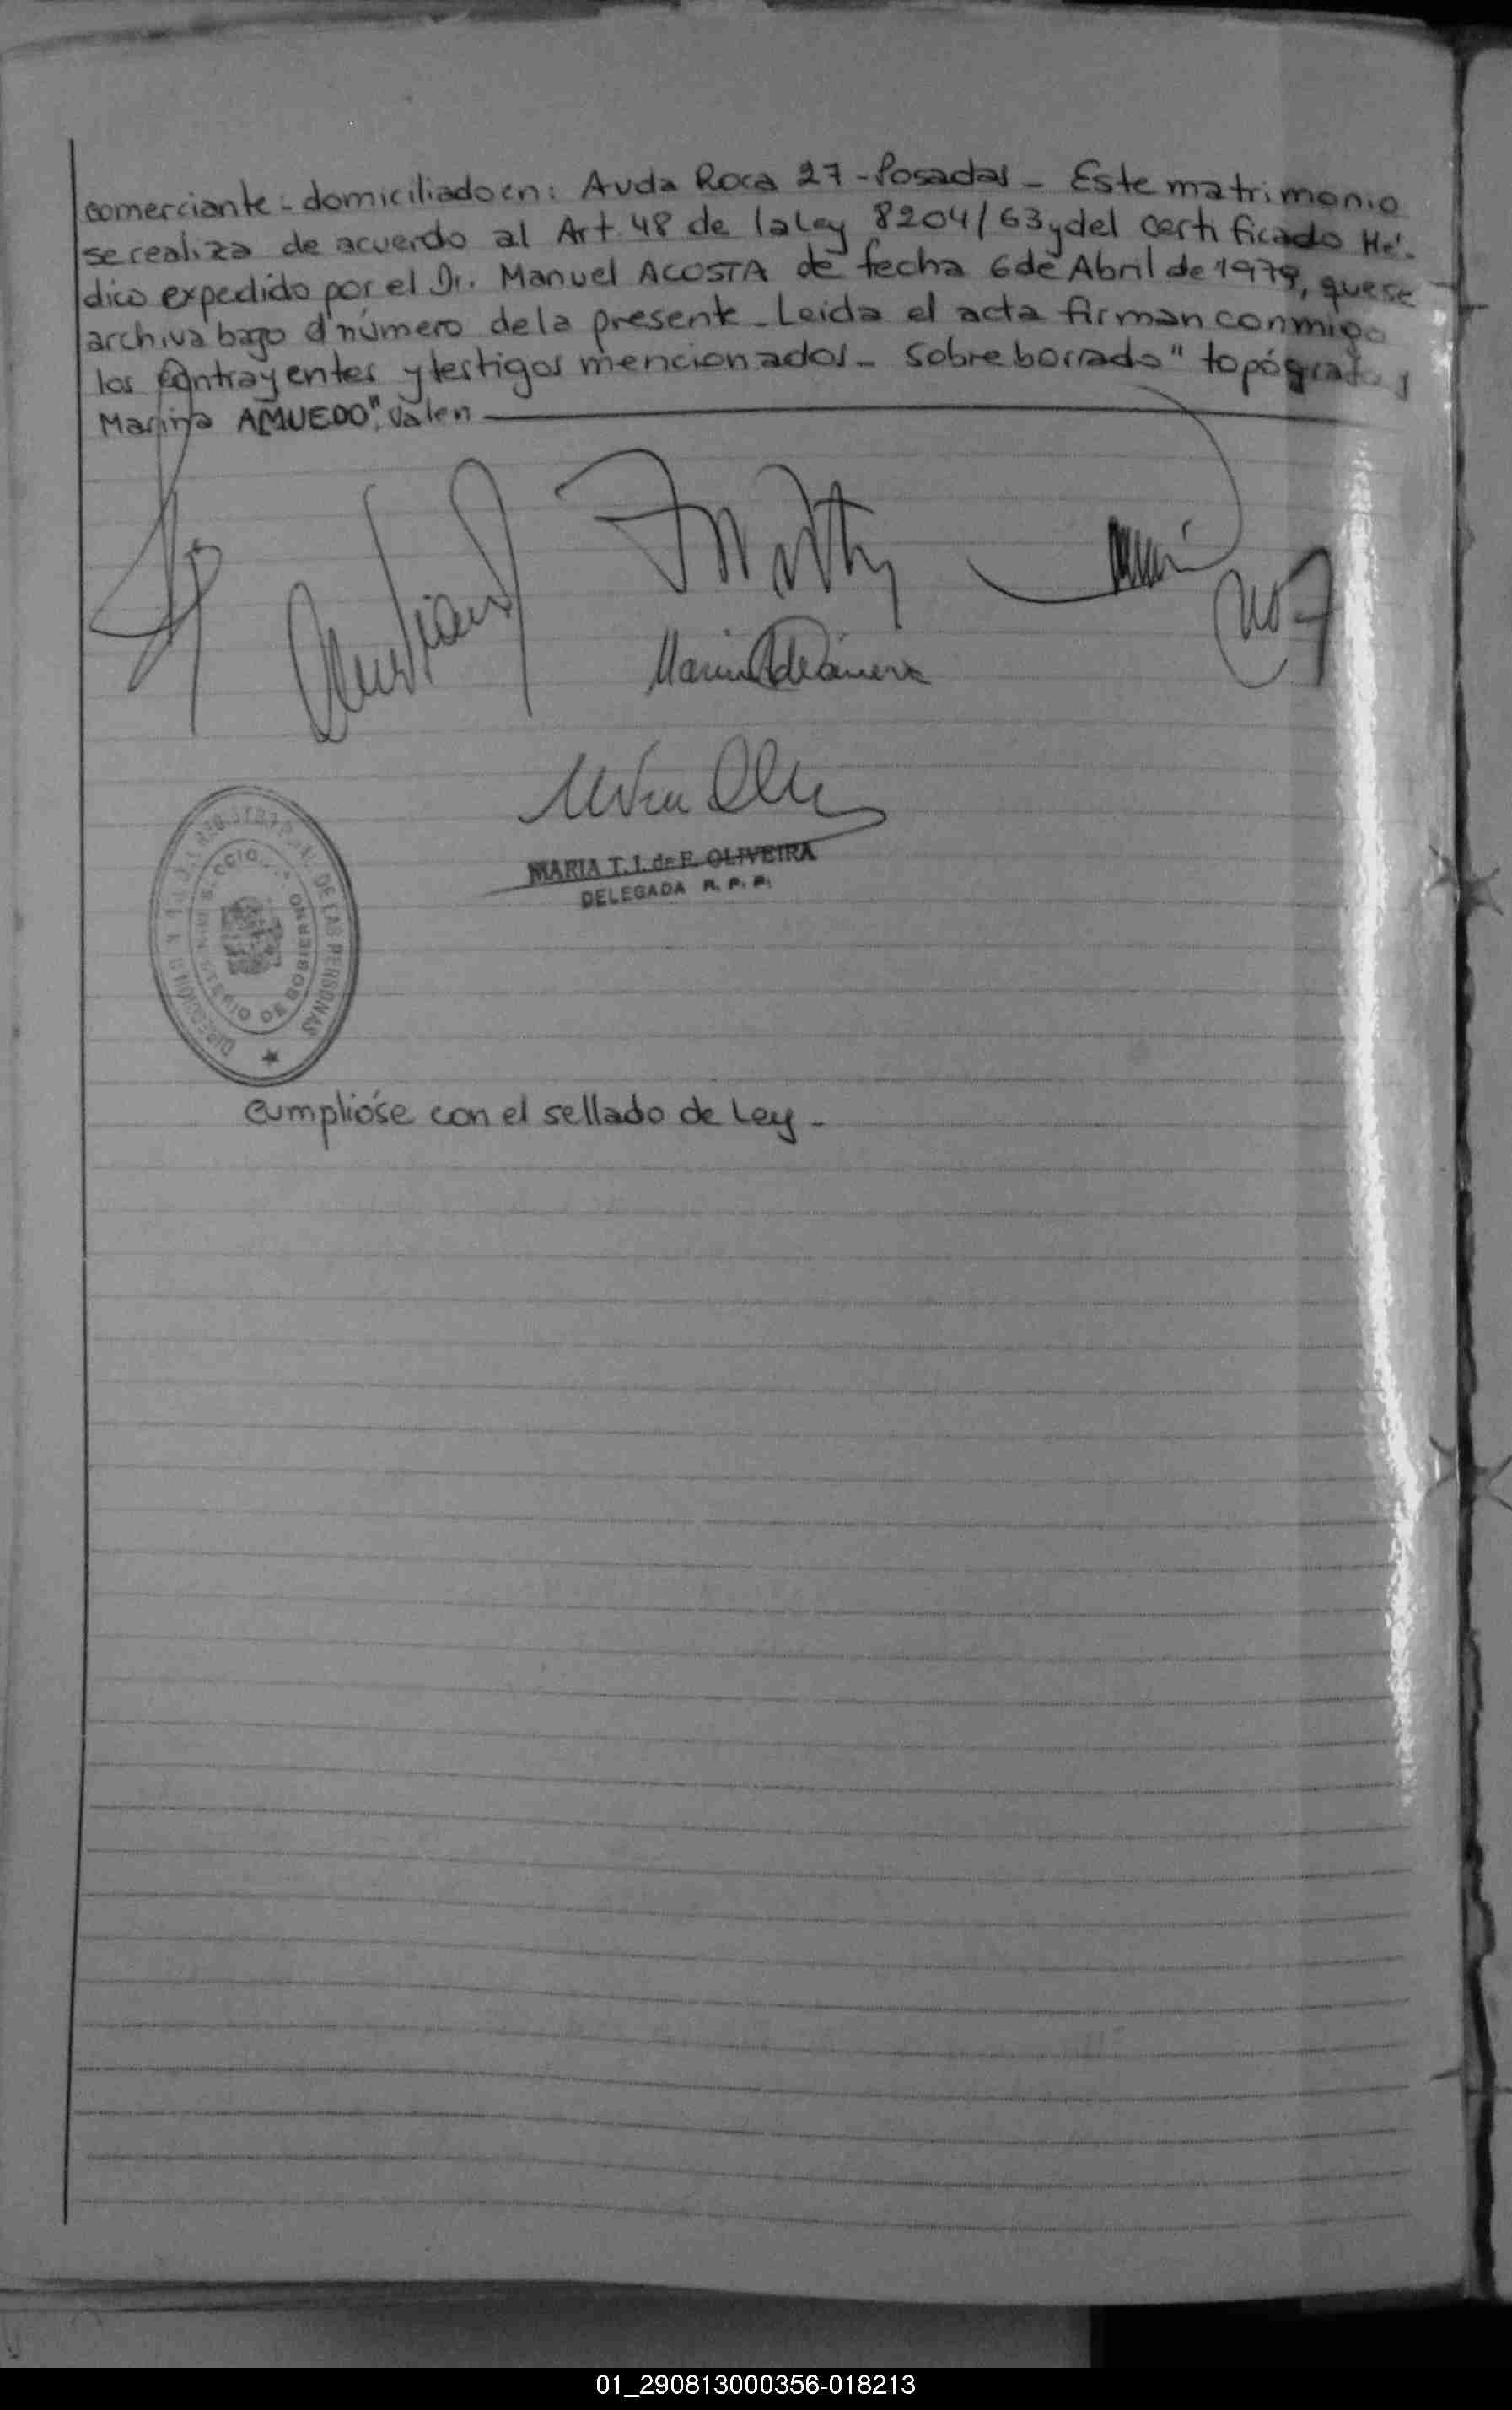 comerciante - domiciliado en: Avda Roca 27 - Posadas - Este matrimonio
se realiza de acuerdo al Art. 48 de la Ley 8204/63 y del certificado Mé-
dico expedido por el Dr. Manuel ACOSTA de fecha 6 de Abril de 1979, que se
archiva bajo el número de la presente - Leida el acta firman conmigo
los contrayentes y testigos mencionados - Sobre borrado "topógrafo y
Marina AMUEDO", Valen
MARIA T. I. de F. OLIVEIRA
DELEGADA R. P. P.
DE LAS PERSONAS
DE GOBIERNO
cumplióse con el sellado de Ley -
01_290813000356-018213